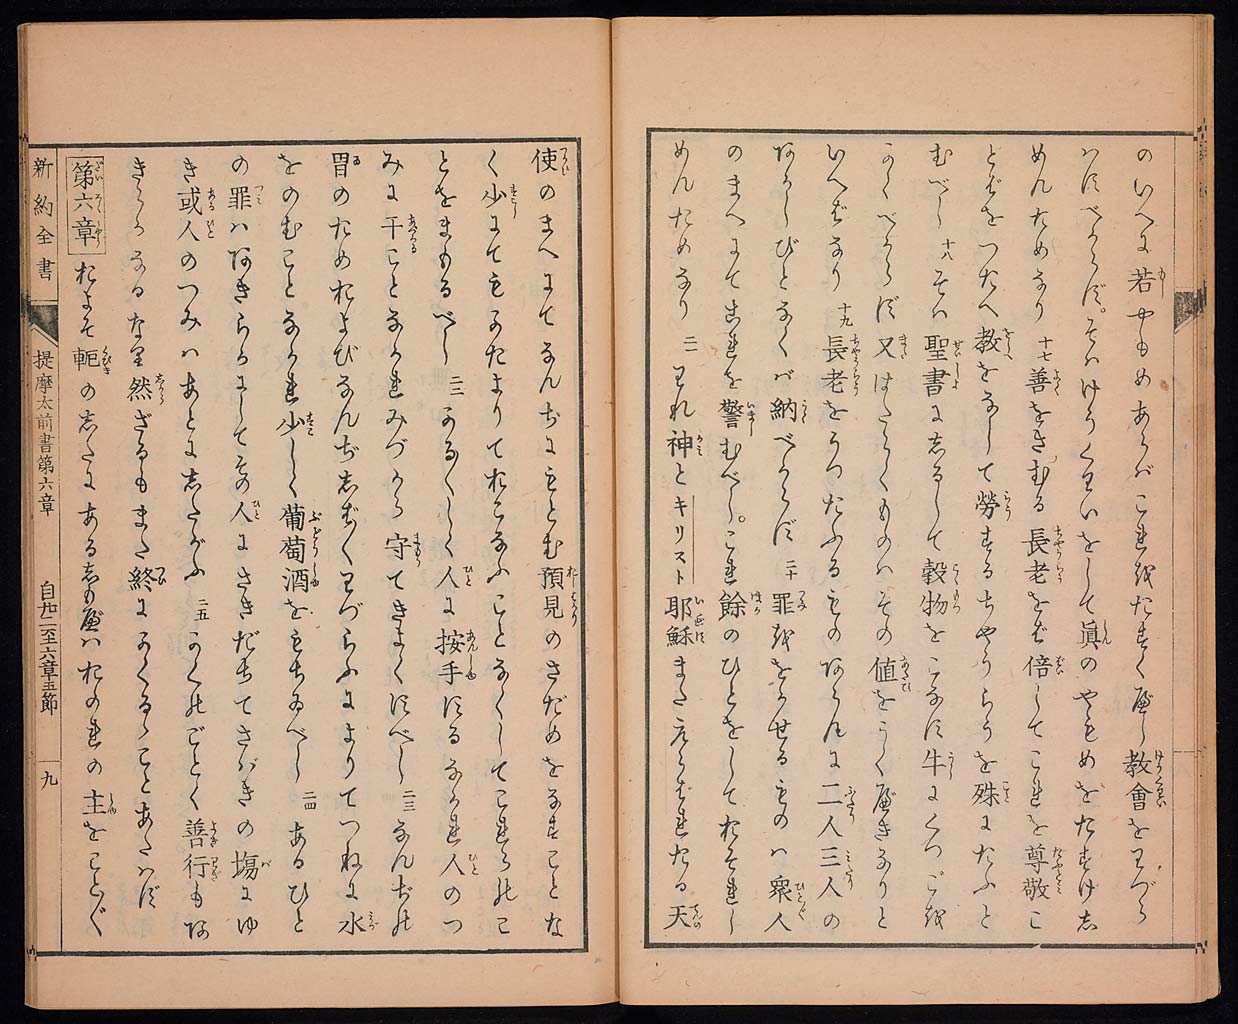 のいへに若やもめあらバこれをたすくべし教會をわづら
ハすべからず。そハけうくわいをして眞のやもめをたすけし
めんためなり 十七 善をさむる長老をバ倍してこれを尊敬こ
とばをつたへ教をなして勞するちやうらうを殊にたふと
むべし 十八 そハ聖書にしるして穀物をこなす牛にくつごを
かくべからず 又はたらくものハその値をうくべきなりと
いへバなり 十九 長老をうつたふるものあらんに二人三人の
あかしびとなくバ納べからず 二十 罪ををかせるものハ衆人
のまへにてこれを警むべし。これ餘のひとをしておそれし
めんためなり 二一 われ神とキリスト耶穌またえらばれたる天
使のまへにてなんぢにもとむ預見のさだめをなすことな
く少にてもかたよりておこなふことなくしてこれらのこ
とをまもるべし 二二 かろ〲しく人に按手するなかれ人のつ
みに干ことなかれみづから守てきよくすべし 二三 なんぢの
胃のためおよびなんぢしば〱わづらふによりてつねに水
をのむことなかれ少しく葡萄酒をもちゐべし 二四 あるひと
の罪ハあきらかにしてその人にさきだちてさばきの塲にゆ
き或人のつみハあとにしたがふ 二五 かくのごとく善行もあ
きらかなるなり然ざるもまた終にかくるゝことあたハず
第六章 およそ軛のしたにあるしもべハおのれの主をこと〲
新約全書 提摩太前書第六章 自廿二至六章五節 九